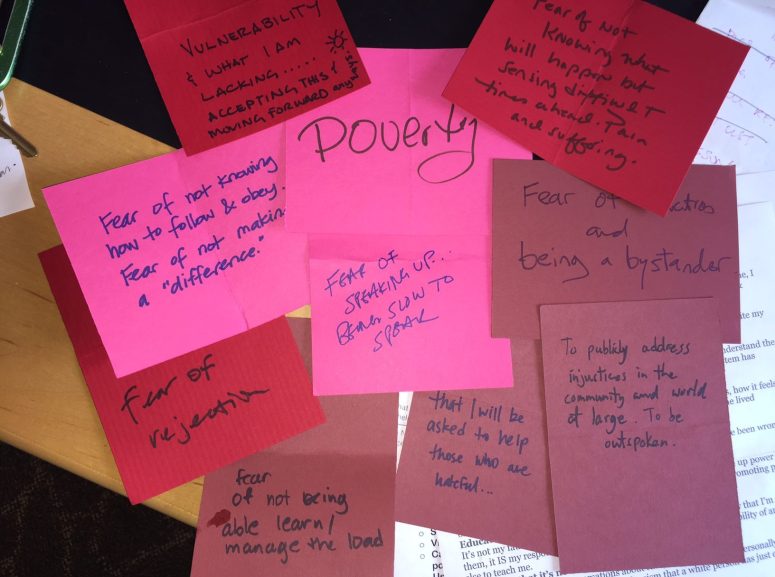 VULNERABILITY
& WHAT I AM
LACKING.....
ACCEPTING THIS &
MOVING FORWARD anyways
Fear of not
knowing what
will happen but
sensing difficult
times ahead. Pain
and suffering.
Poverty
Fear of not knowing
how to follow & obey.
Fear of not making
a "difference."
Fear of
and
being a bystander
FEAR OF
SPEAKING UP...
BEING SLOW TO
SPEAK
Fear of
rejection
To publicly address
injustices in the
community and world
at large. To be
outspoken.
that I will be
asked to help
those who are
hateful...
fear
of not being
able learn/
manage the load
me, I
understand the
em has
s, how it feels
be lived
been wrong
up power
promoting
that I'm
It's not my
them, it IS my
else to teach me.
that a white person has just